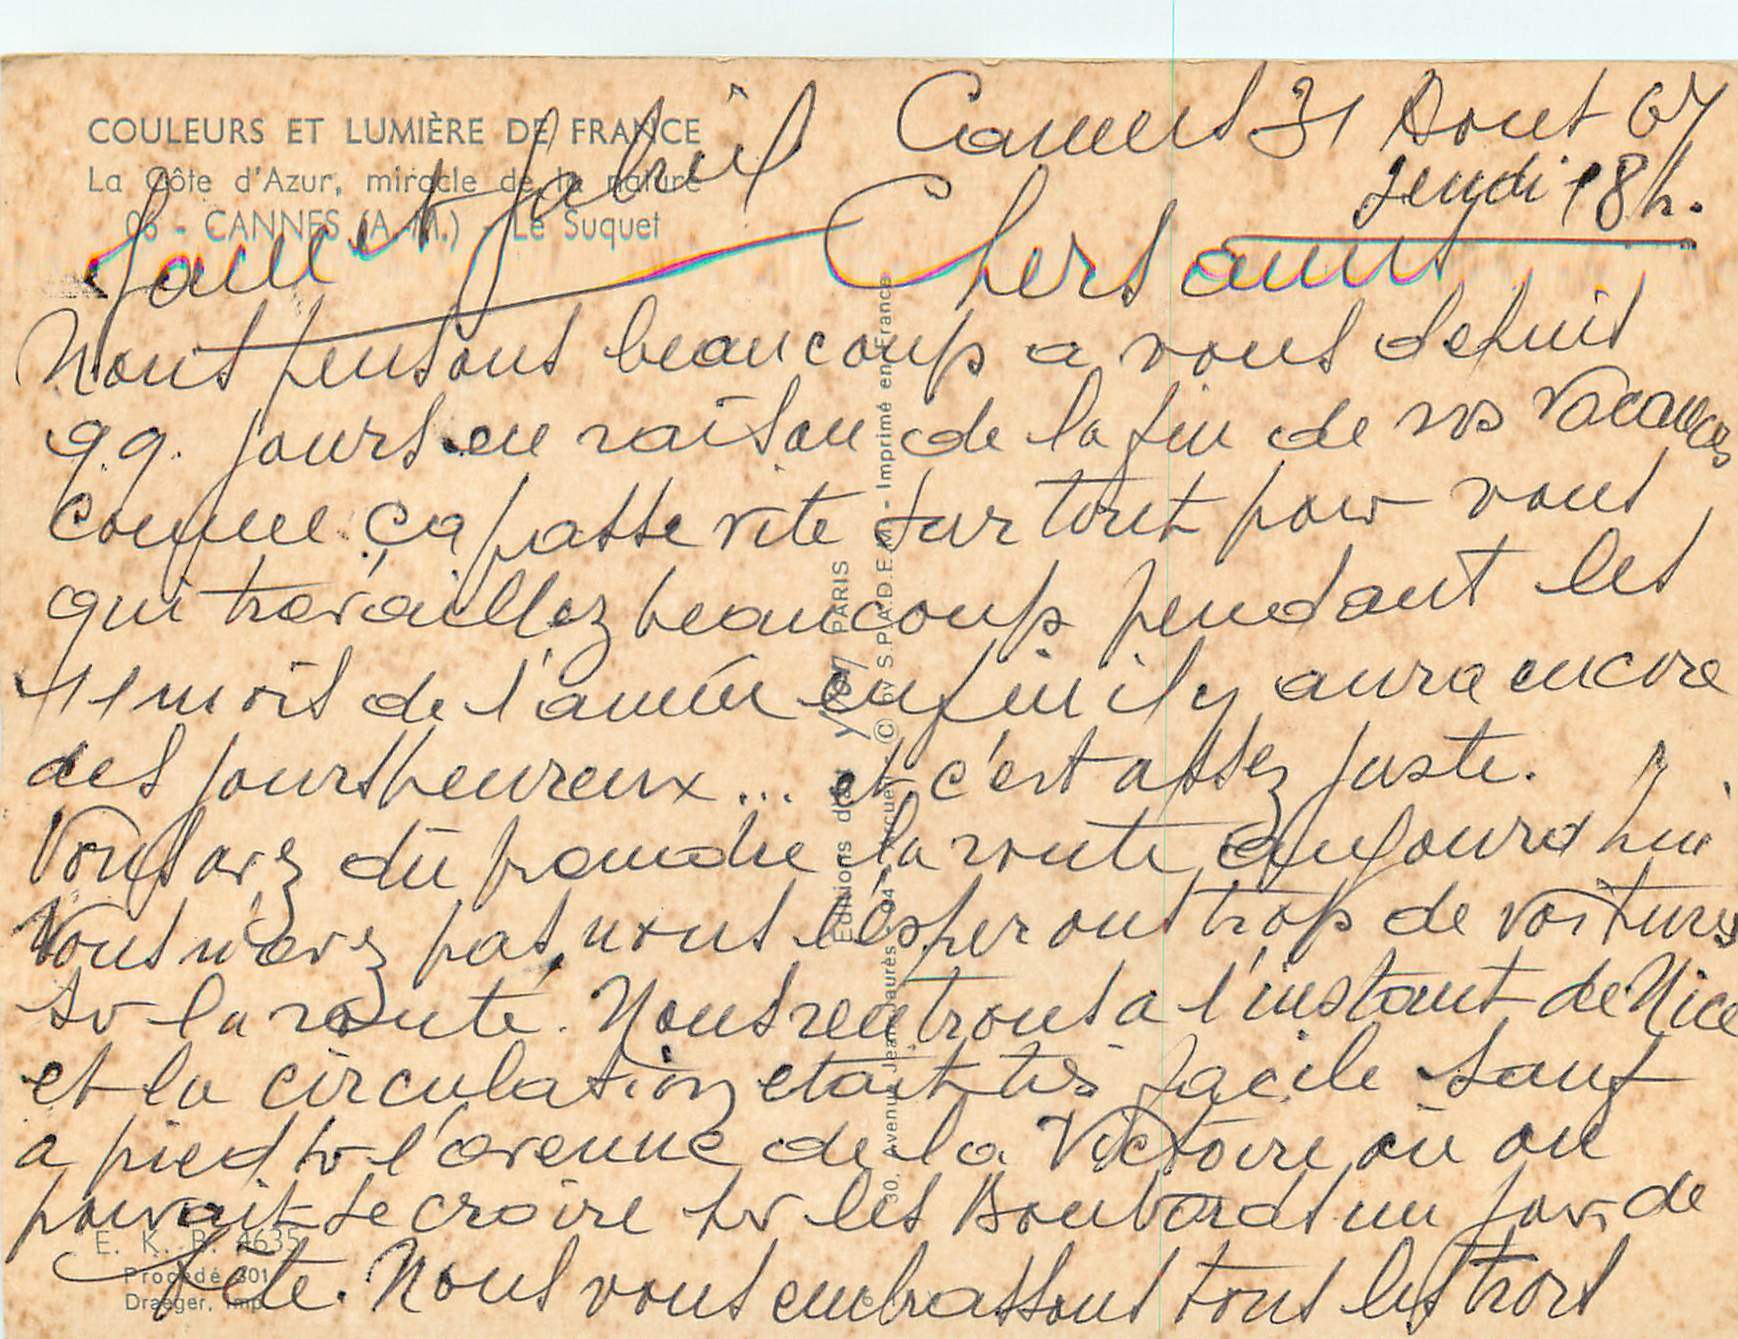 COULEURS ET LUMIÈRE DE FRANCE
La Côte d'Azur, miracle de la nature
06 - CANNES (A.-M.) - Le Suquet
Cannes 31 Aout 67
Jeudi 18h.
Chers amis
Nous pensons beaucoup a vous depuis
qq. jours en raison de la fin de vos vacances
comme ça passe vite surtout pour vous
qui travaillez beaucoup pendant les
11 mois de l'année enfin il y aura encore
des jours heureux... et c'est assez juste.
Vous avez dû prendre la route aujourd'hui
Vous n'avez pas, nous l'espérons trop de voitures
sr la route. Nous rentrons a l'instant de Nice
et la circulation etait très facile sauf
a pied sr l'avenue de la Victoire où on
pouvait se croire sr les Boulvards un jour de
fête. Nous vous embrassons tous les trois
Editions d'art YVON PARIS
30, Avenue Jean-Jaurès - 94 Arcueil © by S.P.A.D.E.M. - Imprimé en France
E. K. B. 4635
Procédé 301
Draeger, Imp.